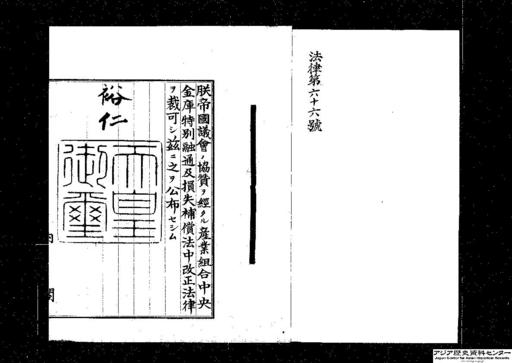 法律第六十六號
朕帝國議會ノ協贊ヲ經タル産業組合中央
金庫特別融通及損失補償法中改正法律
ヲ裁可シ茲ニ之ヲ公布セシム
裕仁
天皇
御璽
内閣
アジア歴史資料センター
Japan Center for Asian Historical Records